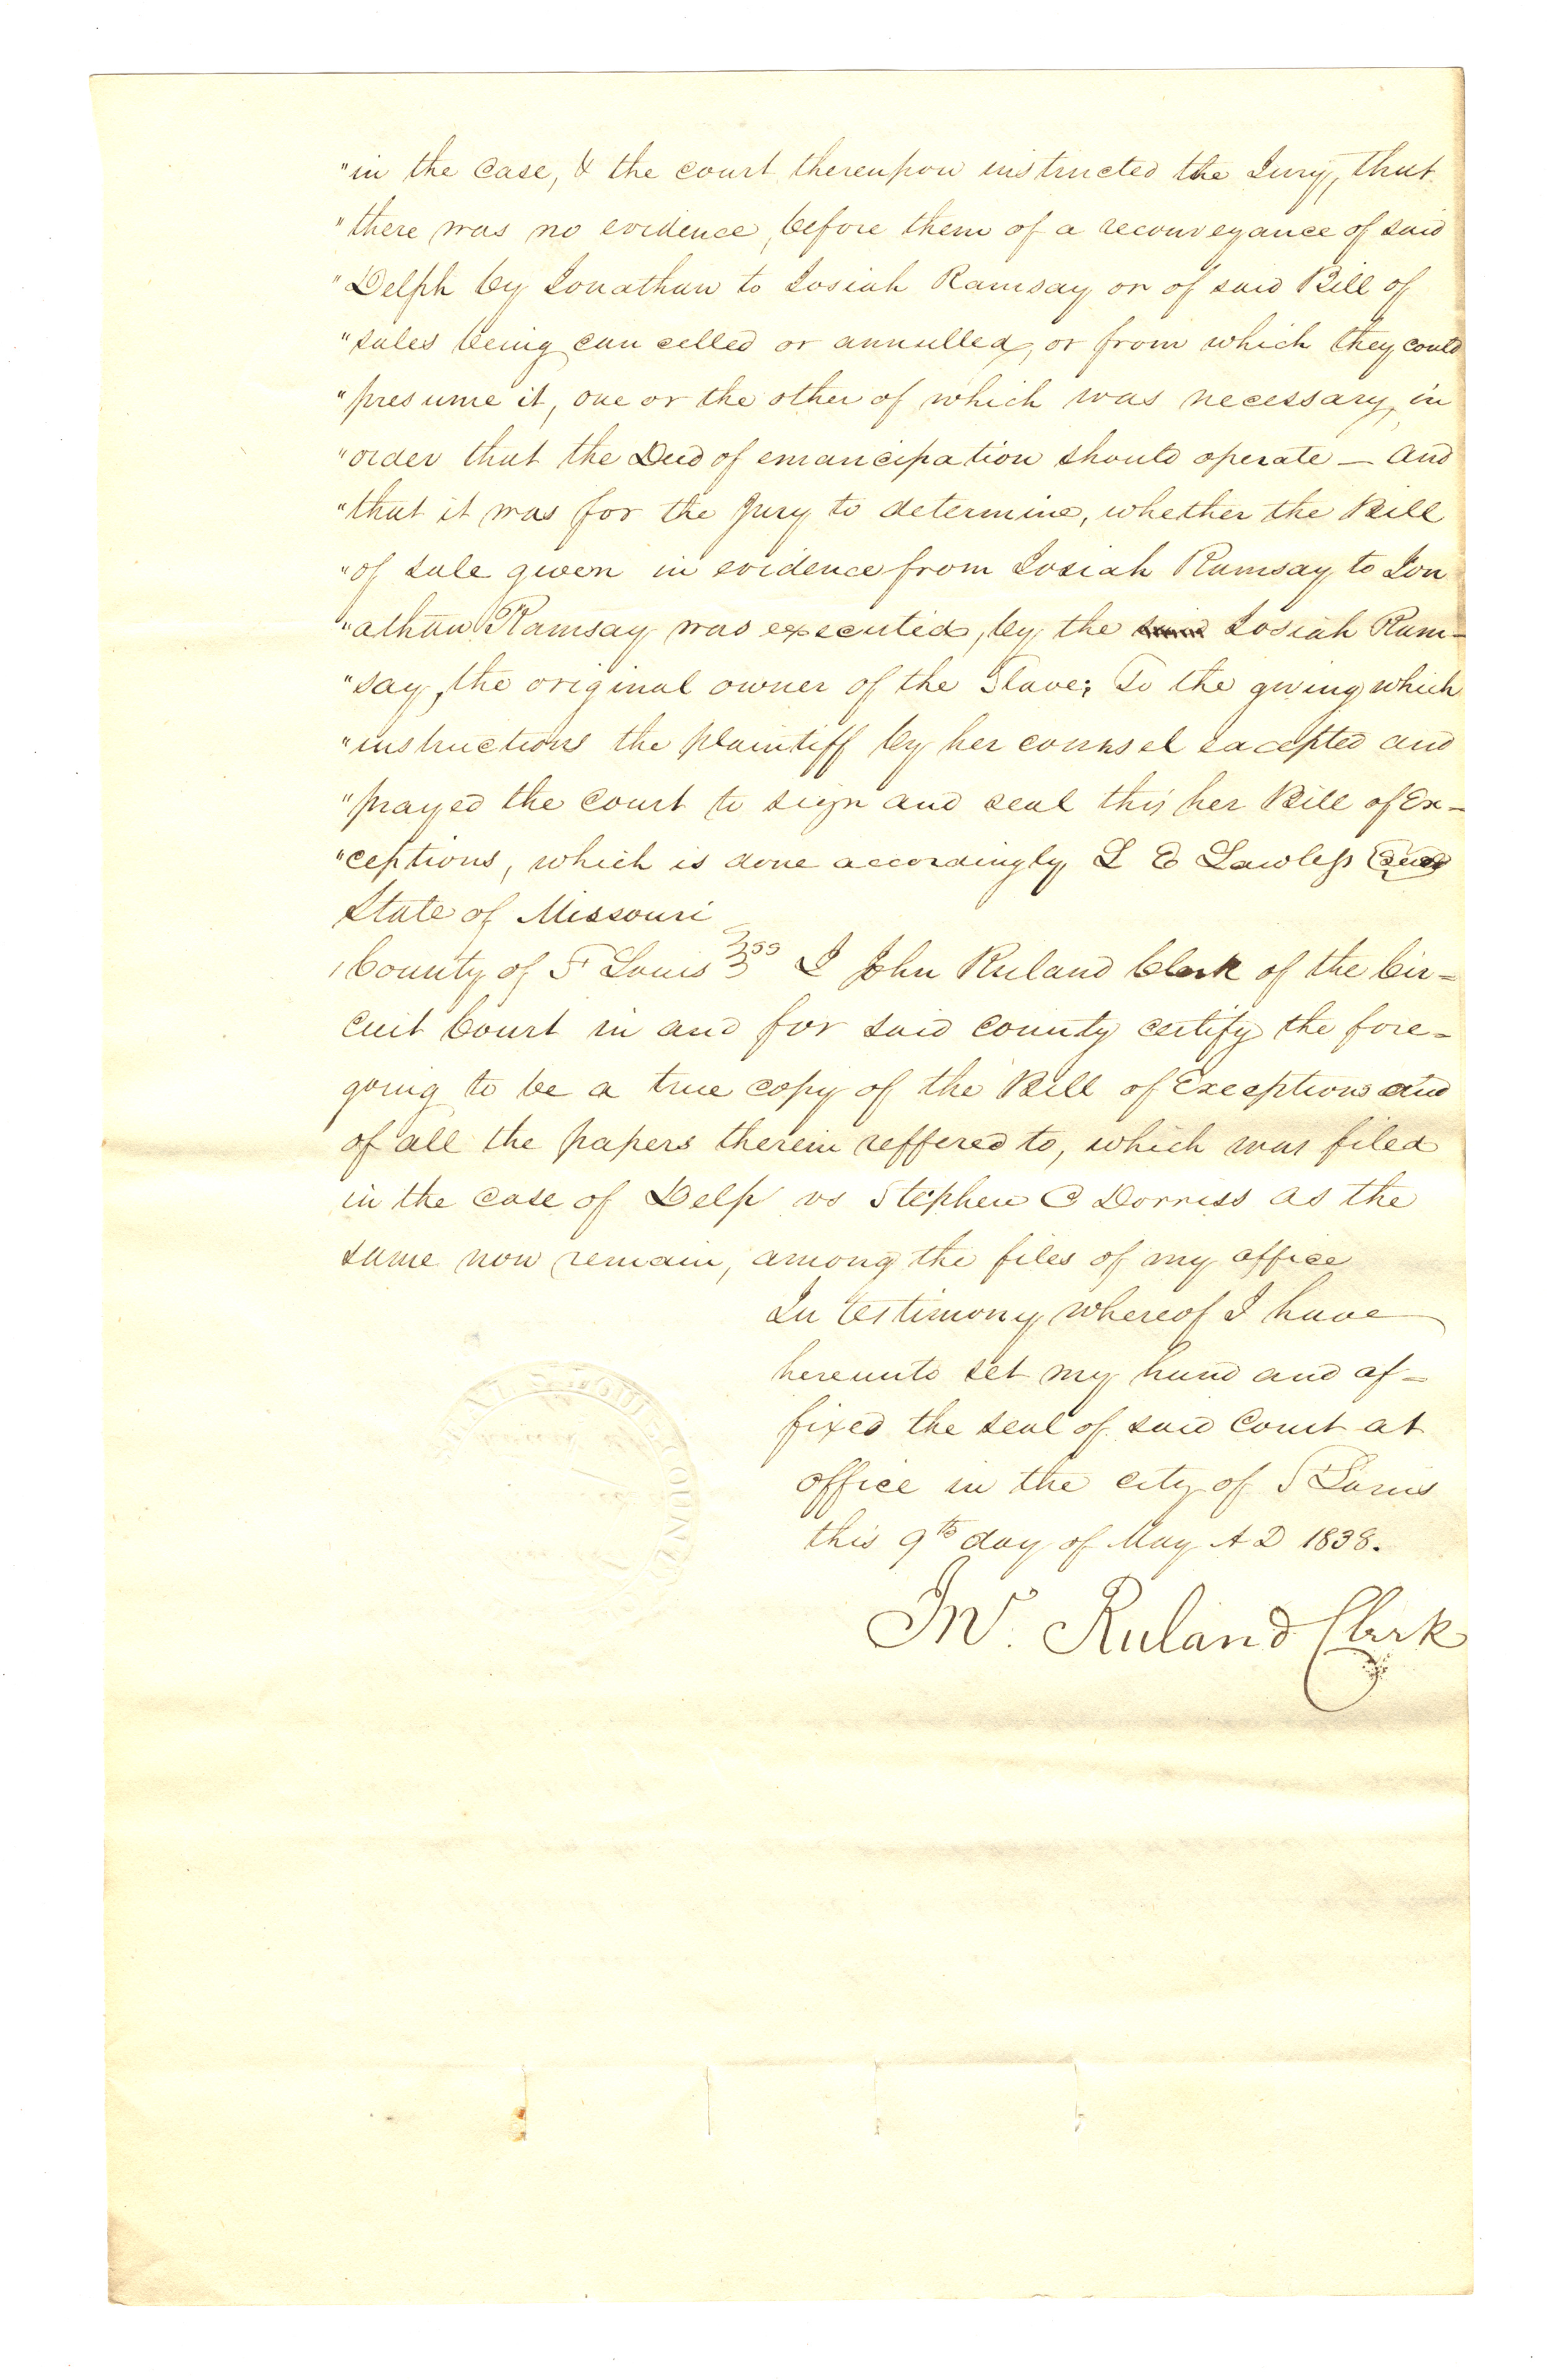 "in the case, & the court thereupon instructed the Jury, that
"there was no evidence, before them of a reconveyance of said
"Delph by Jonathan to Josiah Ramsay or of said Bill of
"sales being cancelled or annulled, or from which they could
"presume it, one or the other of which was necessary, in
"order that the Deed of emancipation should operate — and
"that it was for the Jury to determine, whether the Bill
"of sale given in evidence from Josiah Ramsay to Jon
"athan Ramsay was executed, by the said Josiah Ram-
"say, the original owner of the Slave; To the giving which
"instructions the plaintiff by her counsel excepted and
"prayed the Court to sign and seal this her Bill of Ex-
"ceptions, which is done accordingly L E Lawless Seal
State of Missouri
County of St Louis ss I John Ruland Clerk of the Cir=
cuit Court in and for said County certify the fore=
going to be a true copy of the Bill of Exceptions and
of all the papers therein reffered to, which was filed
in the case of Delp vs Stephen C Dorriss as the
same now remain, among the files of my office
In testimony whereof I have
hereunto set my hand and af=
fixed the seal of said Court at
office in the city of St Louis
this 9th day of May A D 1838.
Jno. Ruland Clerk